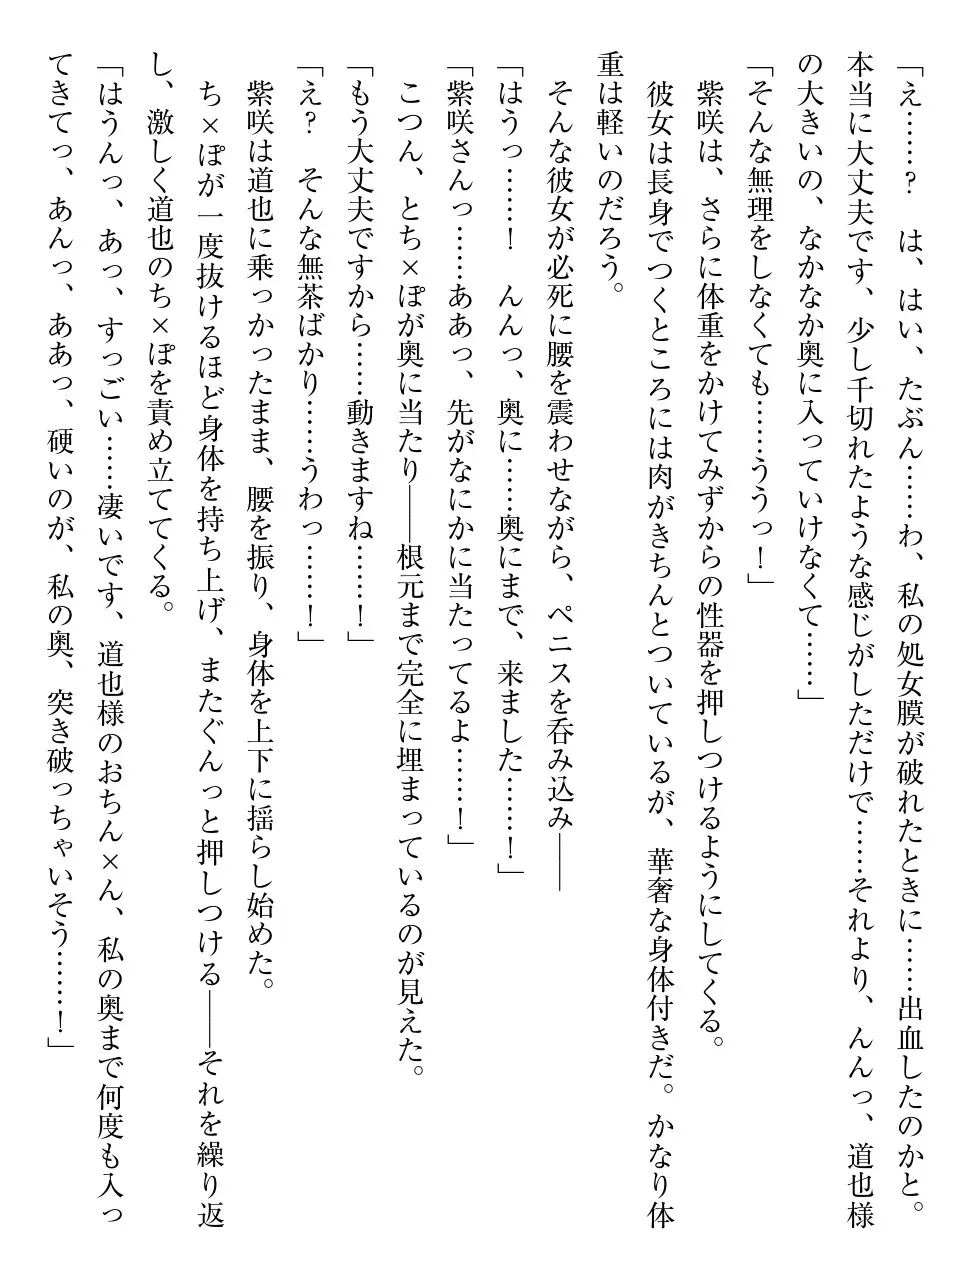 「え……？　は、はい、たぶん……わ、私の処女膜が破れたときに……出血したのかと。
本当に大丈夫です、少し千切れたような感じがしただけで……それより、んんっ、道也様
の大きいの、なかなか奥に入っていけなくて……」
「そんな無理をしなくても……ううっ！」
　紫咲は、さらに体重をかけてみずからの性器を押しつけるようにしてくる。
　彼女は長身でつくところには肉がきちんとついているが、華奢な身体付きだ。かなり体
重は軽いのだろう。
　そんな彼女が必死に腰を震わせながら、ペニスを呑み込み――
「はうっ……！　んんっ、奥に……奥にまで、来ました……！」
「紫咲さんっ……ああっ、先がなにかに当たってるよ……！」
　こつん、とち×ぽが奥に当たり――根元まで完全に埋まっているのが見えた。
「もう大丈夫ですから……動きますね……！」
「え？　そんな無茶ばかり……うわっ……！」
　紫咲は道也に乗っかったまま、腰を振り、身体を上下に揺らし始めた。
　ち×ぽが一度抜けるほど身体を持ち上げ、またぐんっと押しつける――それを繰り返
し、激しく道也のち×ぽを責め立ててくる。
「はうんっ、あっ、すっごい……凄いです、道也様のおちん×ん、私の奥まで何度も入っ
てきてっ、あんっ、ああっ、硬いのが、私の奥、突き破っちゃいそう……！」